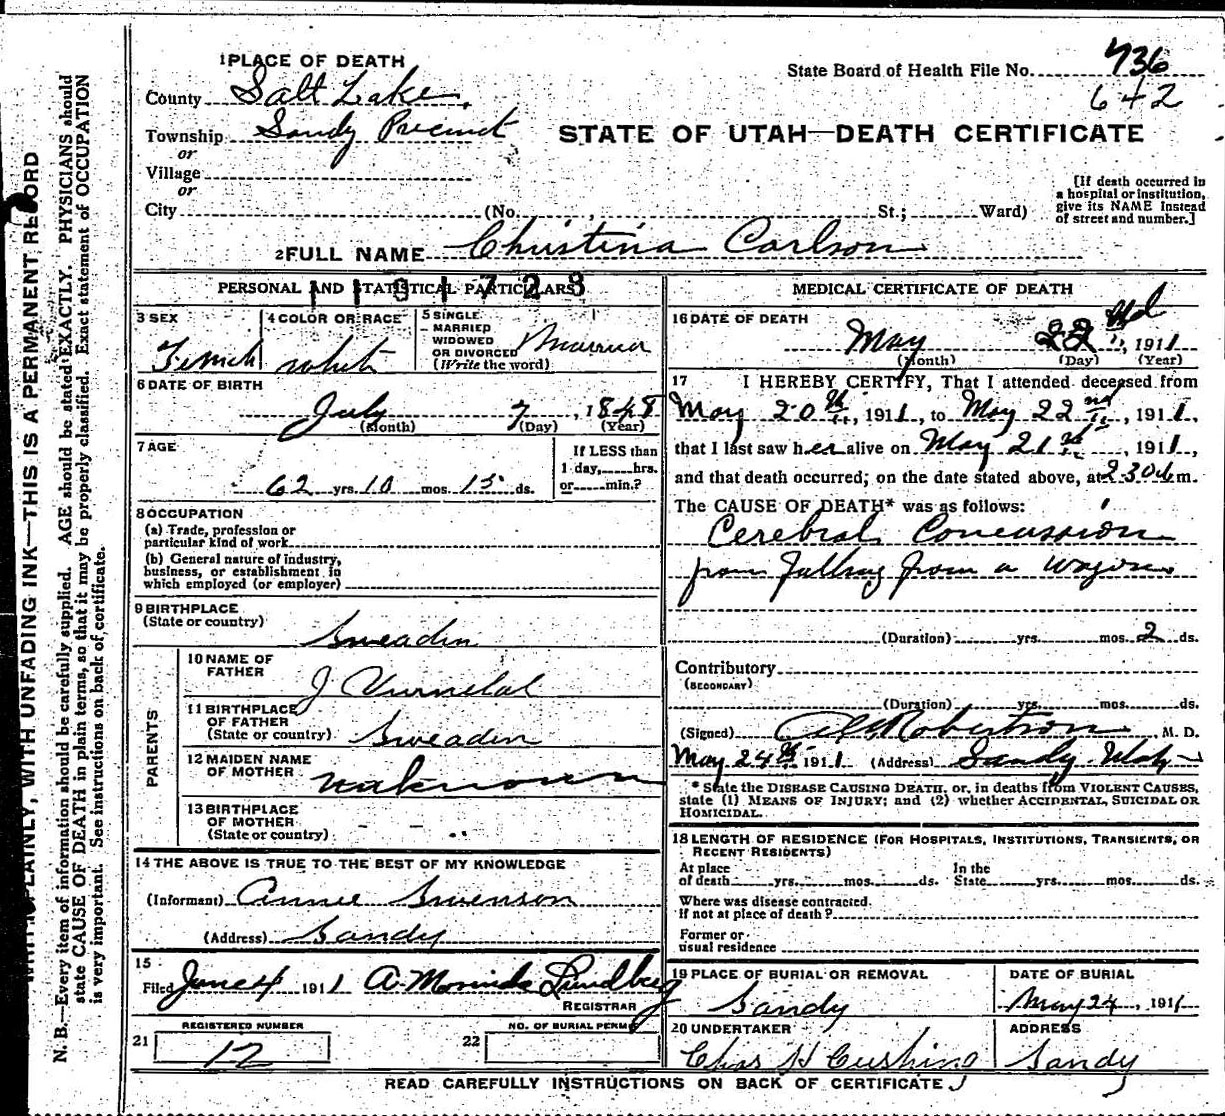 1 PLACE OF DEATH
County Salt Lake
Township Sandy Precinct
or
Village
or
City (No. , St.; Ward)
State Board of Health File No. 736
642
STATE OF UTAH—DEATH CERTIFICATE
[If death occurred in
a hospital or institution,
give its NAME instead
of street and number.]
2 FULL NAME Christina Carlson
PERSONAL AND STATISTICAL PARTICULARS
3 SEX
Female
4 COLOR OR RACE
white
5 SINGLE
MARRIED
WIDOWED
OR DIVORCED
(Write the word)
Married
6 DATE OF BIRTH
July 7, 1848
(Month) (Day) (Year)
7 AGE
62 yrs. 10 mos. 15 ds.
If LESS than
1 day, hrs.
or min.?
8 OCCUPATION
(a) Trade, profession or
particular kind of work
(b) General nature of industry,
business, or establishment in
which employed (or employer)
9 BIRTHPLACE
(State or country)
Sweadin
PARENTS
10 NAME OF
FATHER
J
11 BIRTHPLACE
OF FATHER
(State or country)
Sweadin
12 MAIDEN NAME
OF MOTHER
unknown
13 BIRTHPLACE
OF MOTHER
(State or country)
14 THE ABOVE IS TRUE TO THE BEST OF MY KNOWLEDGE
(Informant) Annie Swenson
(Address) Sandy
15
Filed June 4 1911 A. Lundberg
REGISTRAR
21
REGISTERED NUMBER
12
22
NO. OF BURIAL PERMIT
MEDICAL CERTIFICATE OF DEATH
16 DATE OF DEATH
May 22nd, 1911
(Month) (Day) (Year)
17 I HEREBY CERTIFY, That I attended deceased from
May 20th, 1911, to May 22nd, 1911,
that I last saw her alive on May 21st, 1911,
and that death occurred, on the date stated above, at 2 30 m.
The CAUSE OF DEATH* was as follows:
Cerebral Concussion
from Falling from a wagon
(Duration) yrs. mos. 2 ds.
Contributory
(SECONDARY)
(Duration) yrs. mos. ds.
(Signed) Robertson, M. D.
May 24th 1911 (Address) Sandy Utah
* State the DISEASE CAUSING DEATH, or, in deaths from VIOLENT CAUSES,
state (1) MEANS OF INJURY; and (2) whether ACCIDENTAL, SUICIDAL OR
HOMICIDAL.
18 LENGTH OF RESIDENCE (FOR HOSPITALS, INSTITUTIONS, TRANSIENTS, OR
RECENT RESIDENTS)
At place
of death yrs. mos. ds.
In the
State yrs. mos. ds.
Where was disease contracted,
if not at place of death?
Former or
usual residence
19 PLACE OF BURIAL OR REMOVAL
Sandy
DATE OF BURIAL
May 24, 1911
20 UNDERTAKER
Chas H Cushing
ADDRESS
Sandy
READ CAREFULLY INSTRUCTIONS ON BACK OF CERTIFICATE
PLAINLY, WITH UNFADING INK—THIS IS A PERMANENT RECORD
N. B.—Every item of information should be carefully supplied. AGE should be stated EXACTLY. PHYSICIANS should
state CAUSE OF DEATH in plain terms, so that it may be properly classified. Exact statement of OCCUPATION
is very important. See instructions on back of certificate.